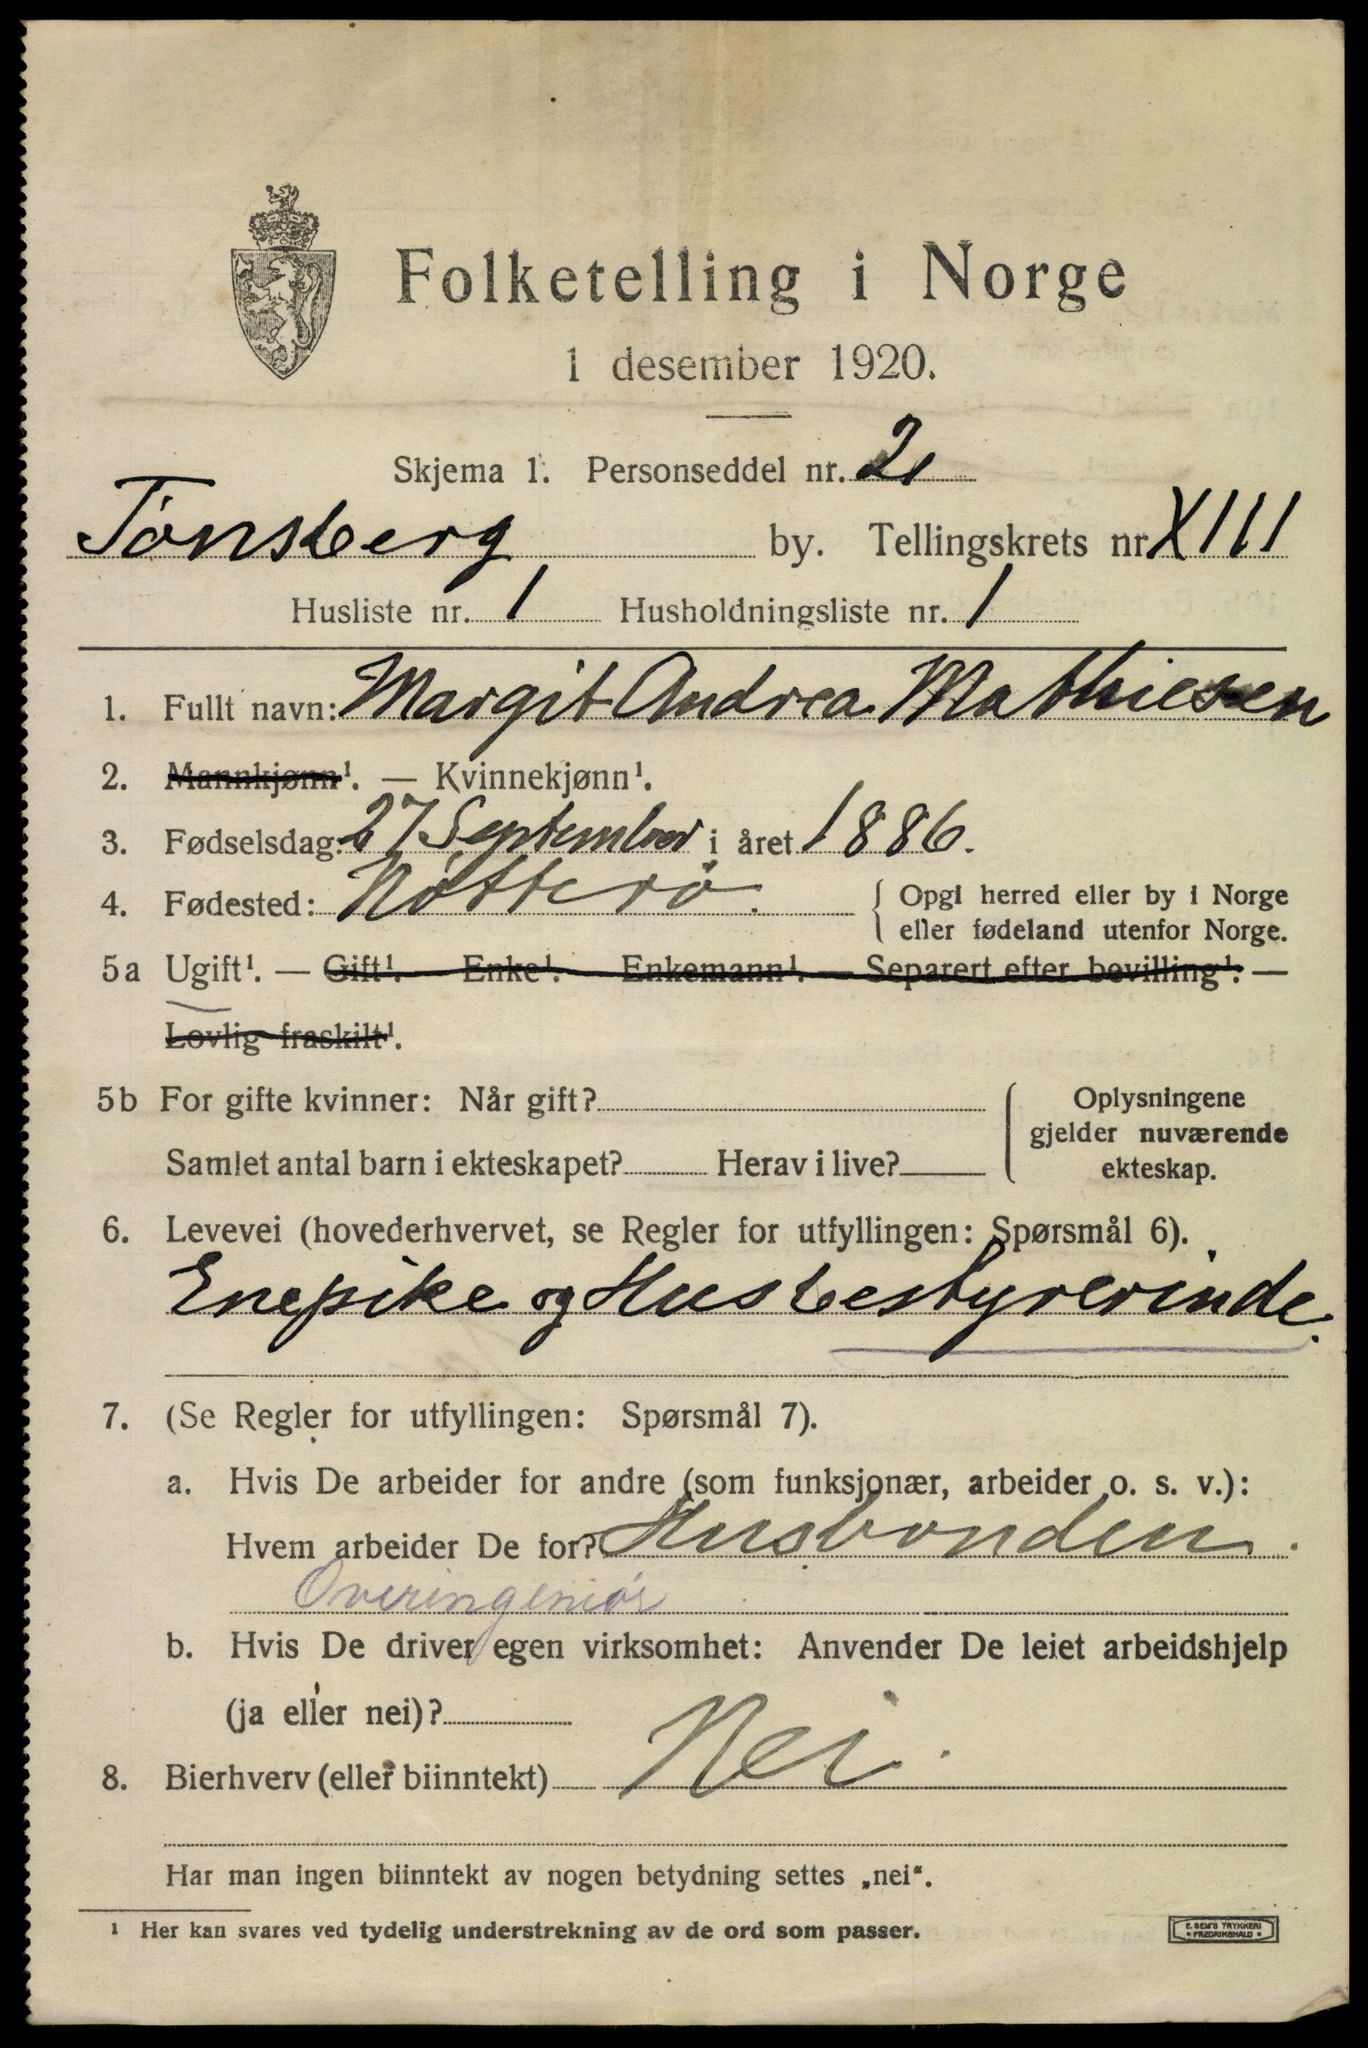 Folketelling i Norge
1 desember 1920.
Skjema 1. Personseddel nr. 2
Tønsberg by. Tellingskrets nr. XIII
Husliste nr. 1 Husholdningsliste nr. 1
1. Fullt navn: Margit Andrea Mathiesen
2. Mannkjønn¹. — Kvinnekjønn¹.
3. Fødselsdag: 27 September i året 1886.
4. Fødested: Nøtterø. { Opgi herred eller by i Norge
eller fødeland utenfor Norge.
5a Ugift¹. — Gift¹. — Enke¹. — Enkemann¹. — Separert efter bevilling¹. —
Lovlig fraskilt¹.
5b For gifte kvinner: Når gift? Oplysningene
gjelder nuværende
Samlet antal barn i ekteskapet? Herav i live? ekteskap.
6. Levevei (hovederhvervet, se Regler for utfyllingen: Spørsmål 6).
Enepike og Husbestyrerinde.
7. (Se Regler for utfyllingen: Spørsmål 7).
a. Hvis De arbeider for andre (som funksjonær, arbeider o. s. v.):
Hvem arbeider De for? Husbonden.
Overingeniør
b. Hvis De driver egen virksomhet: Anvender De leiet arbeidshjelp
(ja eller nei)?
8. Bierhverv (eller biinntekt) Nei.
Har man ingen biinntekt av nogen betydning settes „nei“.
¹ Her kan svares ved tydelig understrekning av de ord som passer.
E. SEM'S TRYKKERI
• FREDRIKSHALD •